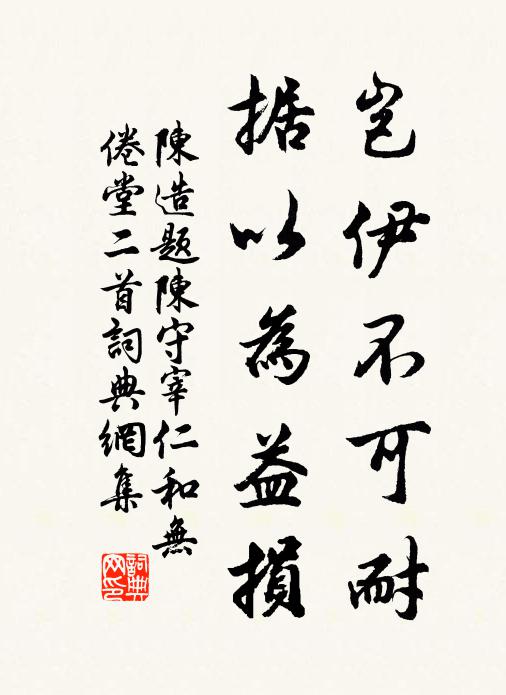 岂伊不可耐
据以為益損
陳造題陳守宰仁和無
倦堂二首詞典網集
詞典
网印